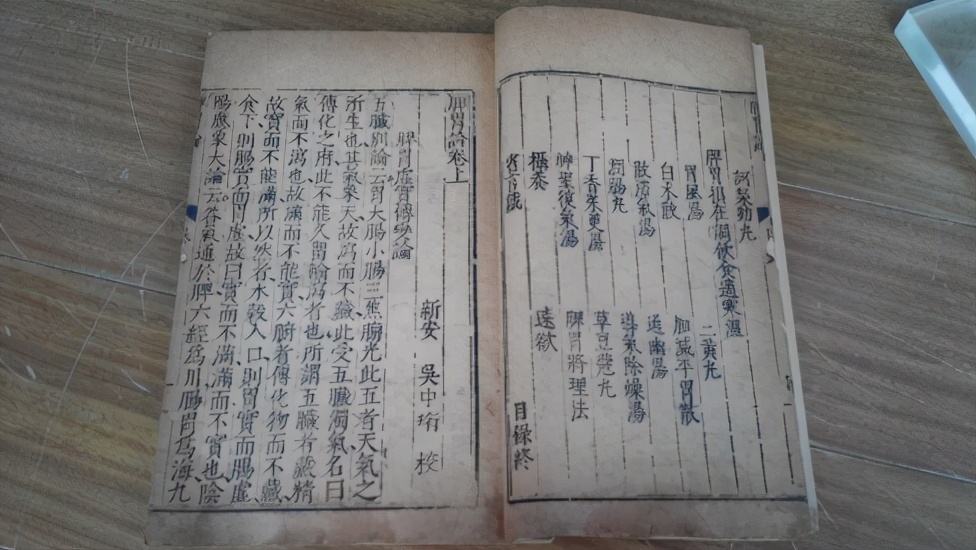 訶梨勒丸
脾胃損在調飲食適寒溫
胃風湯 三黃丸
白朮散 加減平胃散
散滯氣湯 通幽湯
潤腸丸 導氣除燥湯
丁香茱萸湯 草豆蔻丸
神聖復氣湯 脾胃將理法
攝養 遠欲
省言箴
目錄終
脾胃論卷上
新安 吳中珩 校
脾胃虛實傳變論
五臟別論云胃大腸小腸三焦膀胱此五者天氣之
所生也其氣象天故瀉而不藏此受五臟濁氣名曰
傳化之府此不能久留輸瀉者也所謂五臟者藏精
氣而不瀉也故滿而不能實六腑者傳化物而不藏
故實而不能滿所以然者水穀入口則胃實而腸虛
食下則腸實而胃虛故曰實而不滿滿而不實也陰
陽應象大論云谷氣通於脾六經爲川腸胃爲海九